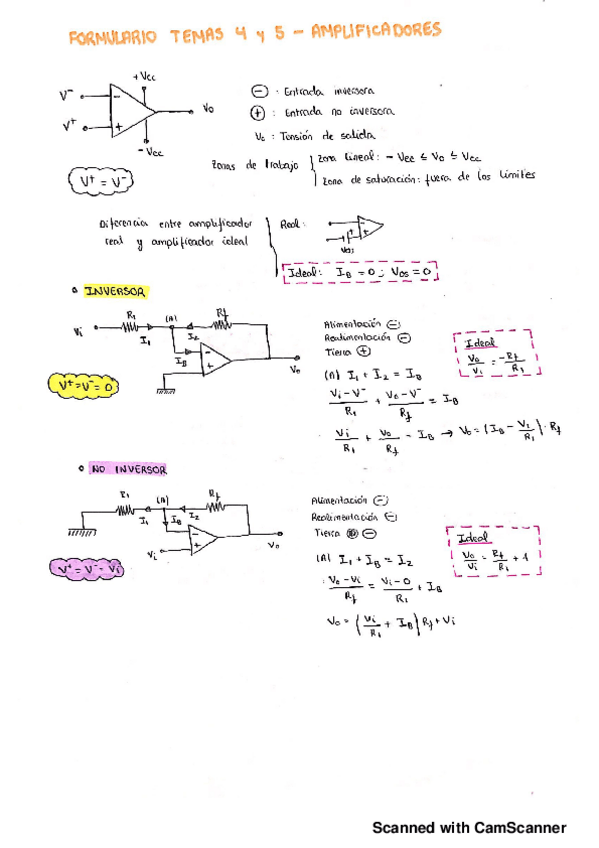 FORMULARIO TEMAS 4 y 5 - AMPLIFICADORES
+Vcc
V⁻
V⁺
- +
Vo
-Vcc
V⁺ = V⁻
⊖ : Entrada inversora
⊕ : Entrada no inversora
Vo : Tensión de salida
Zonas de trabajo
Zona lineal: -Vcc ≤ Vo ≤ Vcc
Zona de saturación: fuera de los límites
Diferencia entre amplificador
real y amplificador ideal
Real:
Vos
Ideal: I_B = 0 ; Vos = 0
INVERSOR
Vi R1 (A) Rf
I1 I2
I_B - +
Vo
V⁺=V⁻=0
Alimentación ⊖
Realimentación ⊖
Tierra ⊕
(A) I1 + I2 = I_B
(Vi - V⁻)/R1 + (Vo - V⁻)/Rf = I_B
Vi/R1 + Vo/Rf = I_B → Vo = (I_B - Vi/R1) · Rf
Ideal
Vo/Vi = -Rf/R1
NO INVERSOR
R1 (A) Rf
I1 I_B I2
- +
Vi
Vo
V⁺ = V⁻ = Vi
Alimentación ⊖
Realimentación ⊖
Tierra ⊖
(A) I1 + I_B = I2
(Vo - Vi)/Rf = (Vi - 0)/R1 + I_B
Vo = (Vi/R1 + I_B) Rf + Vi
Ideal
Vo/Vi = Rf/R1 + 1
Scanned with CamScanner